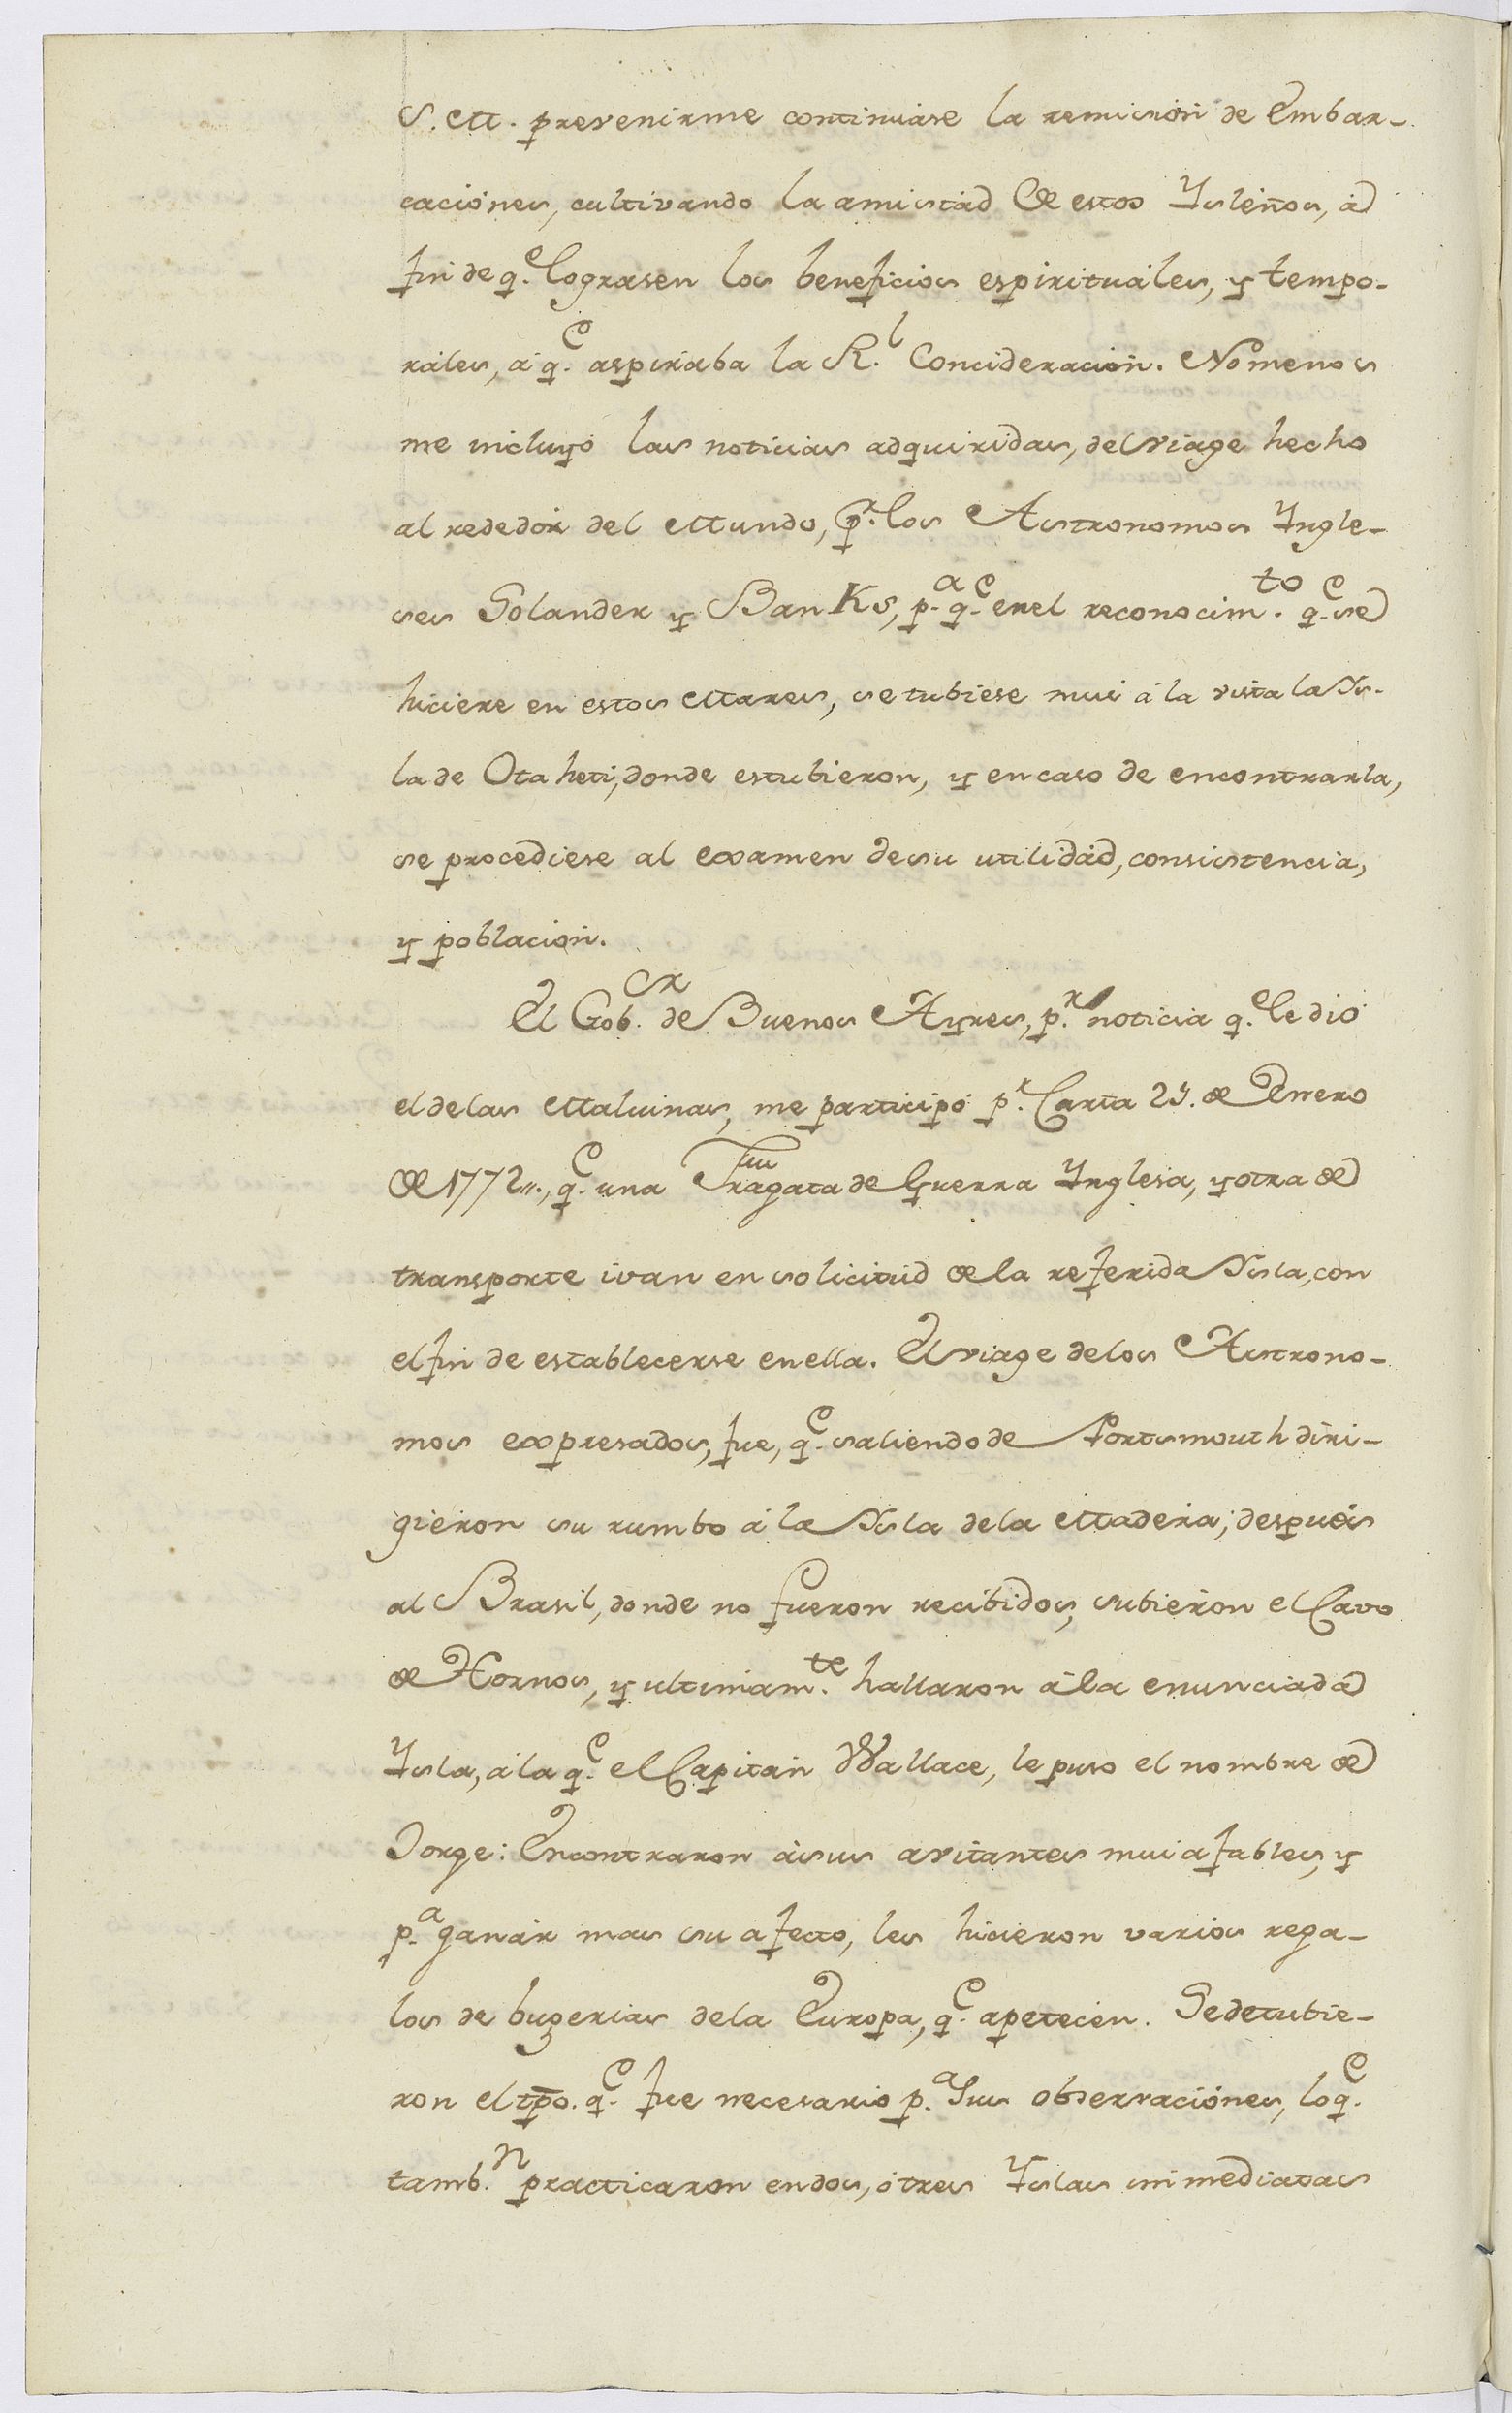 S. M. prevenirme continuase la remision de Embar-
caciónes, cultivando la amistad de estos Ysleños, á
fin de q.e lograsen los beneficios espirituales, y tempo-
rales, á q.e aspiraba la R.l Concideracion. No menos
me incluyó las noticias adquiridas, del viage hecho
al rededor del Mundo, p.r los Astronomos Yngle-
ses Solander y BanKs, p.a q.e en el reconocim.to q.e se
hiciere en estos Mares, se tubiese mui á la vista la Ys-
la de Otaheti, donde estubieron, y en caso de encontrarla,
se procediese al examen de su utilidad, consistencia,
y poblacion.
El Gob.or de Buenos Ayres, p.r noticia q.e le dió
el de las Malvinas, me participó p.r Carta 25. de Enero
de 1772,,., q.e una Fragata de Guerra Ynglesa, y otra de
transporte ivan en solicitud de la referida Ysla, con
el fin de establecerse en ella. El viage de los Astrono-
mos expresados, fue, q.e saliendo de Portsmouth diri-
gieron su rumbo á la Ysla de la Madera; despues
al Brasil, donde no fueron recibidos, subieron el Cavo
de Hornos, y ultimam.te hallaron á la enunciada
Ysla, á la q.e el Capitan Wallace, le puso el nombre de
Jorge: Encontraron á sus avitantes mui afables, y
p.a ganar mas su afecto, les hicieron varios rega-
los de bugerias de la Europa, q.e apetecen. Se detubie-
ron el tpo. q.e fue necesario p.a sus observaciónes, lo q.e
tamb.n practicaron en dos, ó tres Yslas inmediatas